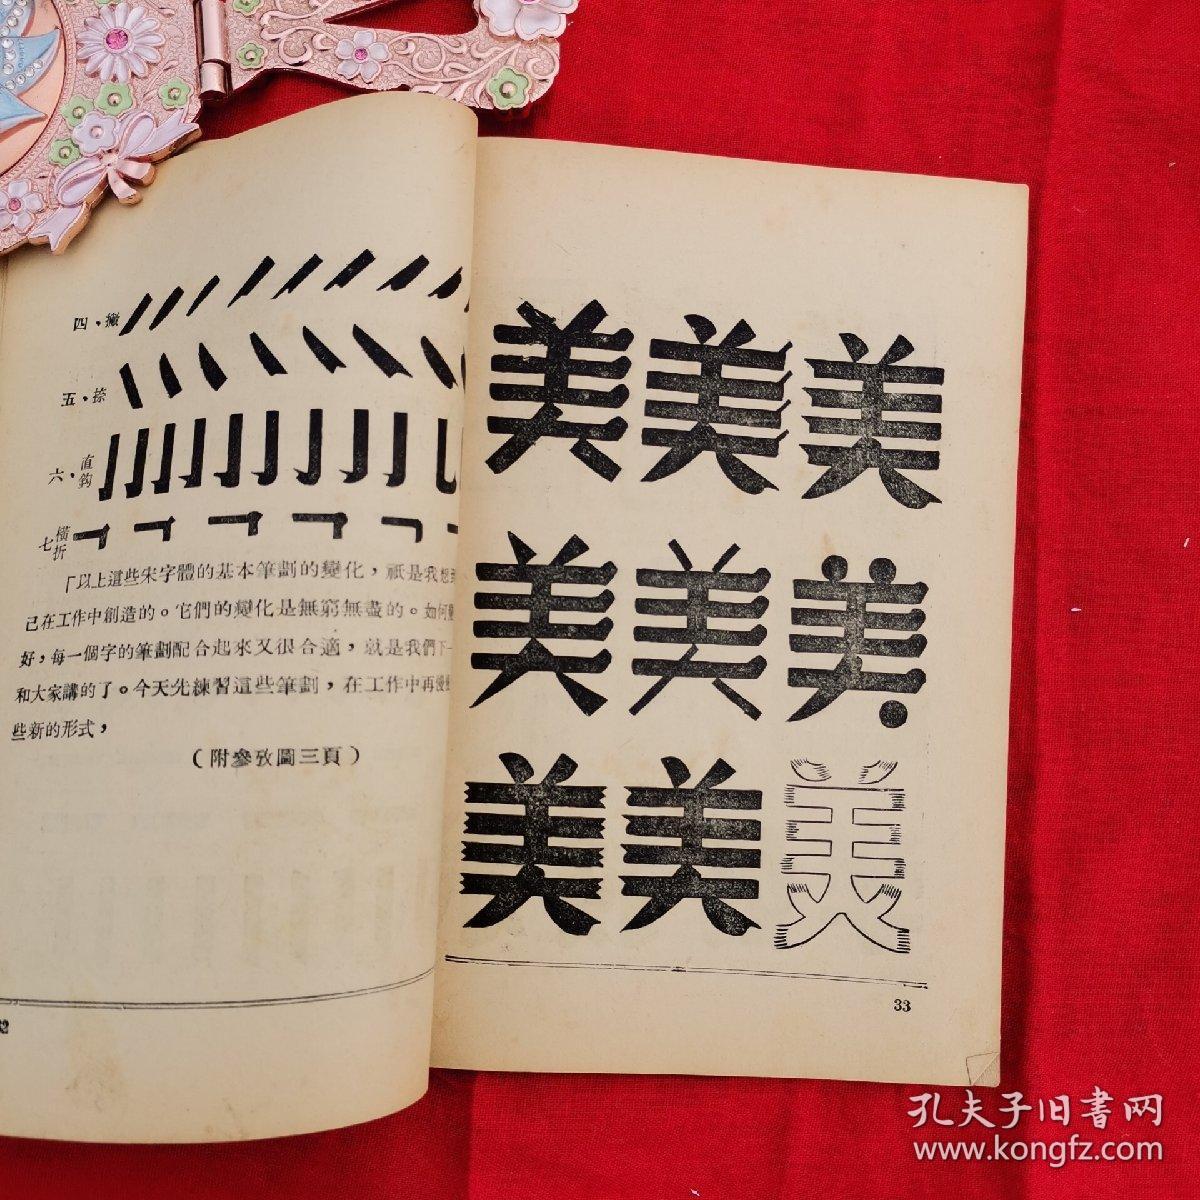 四、撇
五、捺
六、直鈎
七、橫折
「以上這些宋字體的基本筆劃的變化，祇是我想
己在工作中創造的。它們的變化是無窮無盡的。如何
好，每一個字的筆劃配合起來又很合適，就是我們下一
和大家講的了。今天先練習這些筆劃，在工作中再慢
些新的形式，
（附參攷圖三頁）
美美美
美美美
美美美
33
孔夫子旧書网
www.kongfz.com